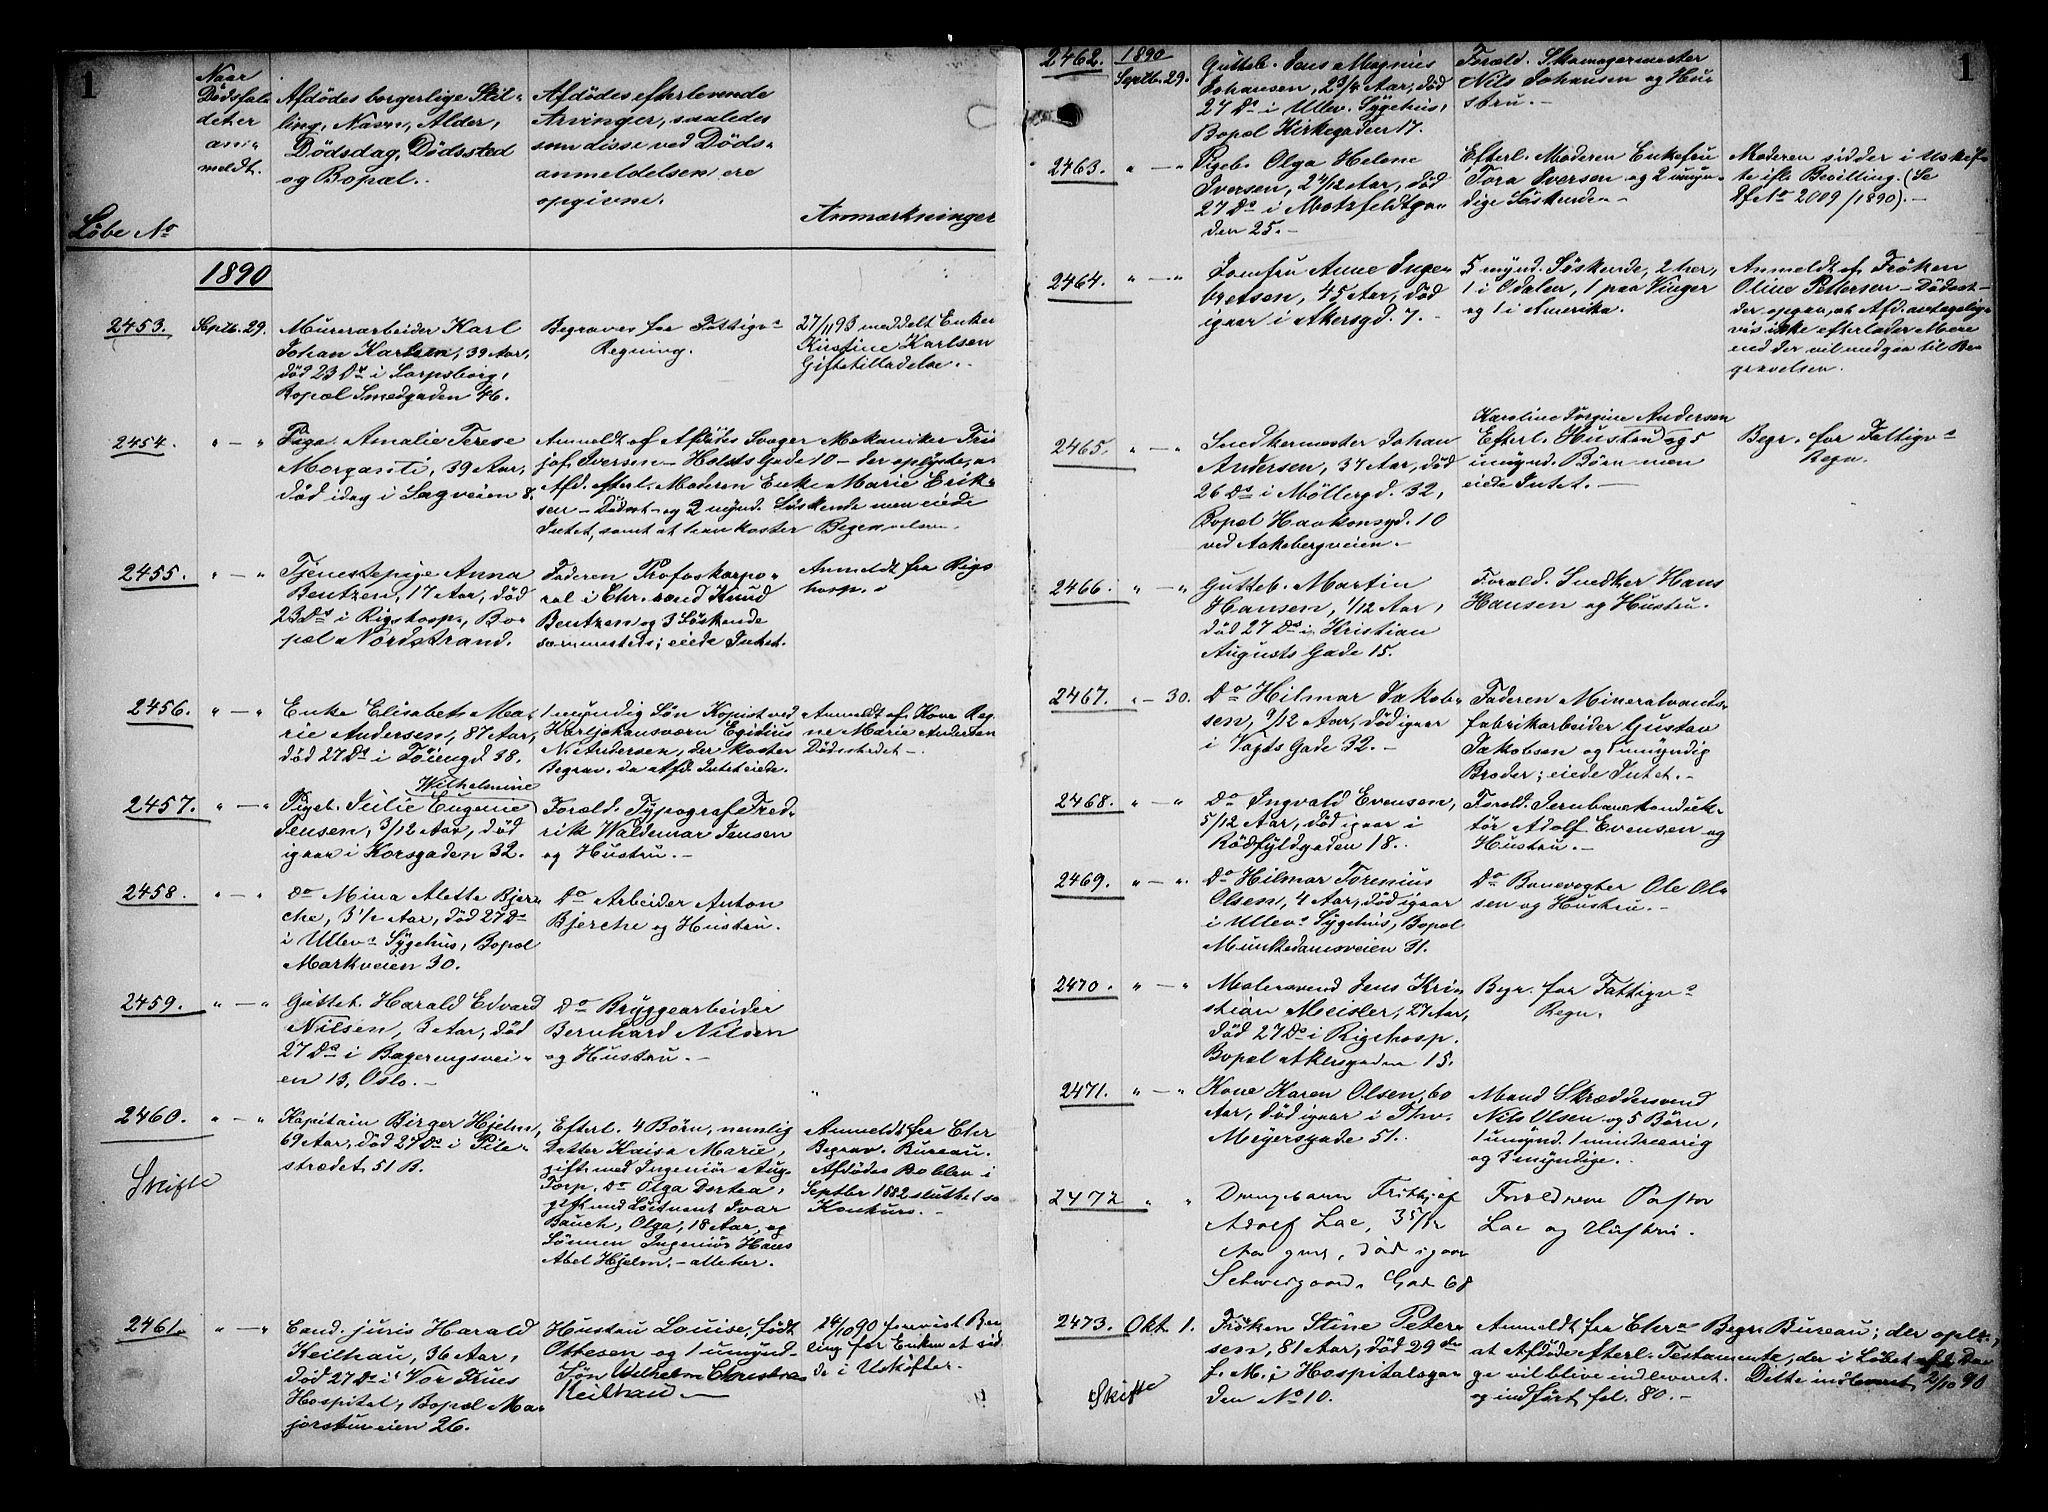 1
Løbe No
Naar
Dødsfal-
det er
an-
meldt.
Afdødes borgerlige Stil-
ling, Navn, Alder,
Dødsdag, Dødssted
og Bopæl.
Afdødes efterlevende
Arvinger, saaledes
som disse ved Døds-
anmeldelsen ere
opgivne.
Anmærkninger
1890
2453. Septb. 29.
Murerarbeider Karl
Johan Karlsen, 39 Aar,
død 23 Ds i Sarpsborg,
Bopæl Smedgaden 46.
Begraves for Fattigv.s
Regning.
27/11 93 meddelt Enken
Kristine Karlsen
Giftetilladelse.
2454. " — "
Pige Amalie Terese
Morganti, 39 Aar,
død idag i Sagveien 8.
Anmeldt af Afdødes Svoger Mekaniker Fri
jof Iversen - Holsts Gade 10 - der oplyste, at
Afd. efterl. Moderen Enke Marie Erik-
sen - Dødsst - og 2 mynd. Søskende men eiede
Intet, samt at han koster Begravelsen.
2455. " — "
Tjenestepige Anna
Bentzen, 17 Aar, død
23 Ds i Rigshosp., Bo-
pæl Nordstrand.
Faderen Profoskorpo-
ral i Chr.sand Knud
Bentzen og 3 Søskende
sammesteds; eiede Intet.
Anmeldt fra Rigs
hosp.
2456. " — "
Enke Elisabeth Ma-
rie Andersen, 87 Aar,
død 27 Ds i Tøiengd 38.
1 myndig Søn Kopist ved
Karljohansværn Egidius
N. Andersen, der koster
Begrav. da Afd. Intet eiede.
Anmeldt af Kone Reg-
ne Marie Andersen
Dødsstedet -.
2457. " — "
Wilhelmine
Pigeb. Julie Eugenie
Jensen, 3/12 Aar, død
igaar i Korsgaden 32.
Foræld. Typograf Fred-
rik Waldemar Jensen
og Hustru. -
2458. " — "
Do Mina Alette Bjer-
che, 3 1/2 Aar, død 27 Ds
i Ullev.s Sygehus, Bopæl
Markveien 30.
Do Arbeider Anton
Bjerche og Hustru.
2459. " — "
Gutteb. Harald Edvard
Nilsen, 3 Aar, død
27 Ds i Bagerengsvei-
en 13, Oslo. -
Do Bryggearbeider
Bernhard Nilsen
og Hustru. -
2460. " — "
Skifte
Kapitain Birger Hjelm,
69 Aar, død 27 Ds i Pile-
strædet 51 B.
Efterl. 4 Børn, nemlig
Datter Kaisa Marie,
gift med Ingeniør Aug.
Torp, Do Olga Dortea,
gift med Løitnant Ivar
Bauch, Olga, 18 Aar, og
Sønnen Ingeniør Hans
Abel Hjelm. - alle her.
Anmeldt fra Chr
Begrav. Bureau.
Afdødes Bo blev i
Septbr 1882 sluttet so
Konkurs. -
2461. " — "
Cand. juris Harald
Keilhau, 36 Aar,
død 27 Ds i Vor Frues
Hospital, Bopæl Ma-
jorstuveien 26.
Hustru Louise, født
Ottesen og 1 umynd.
Søn Wilhelm Christian
Keilhau. -
24/10 90 forevist Bevil-
ling for Enken at sid-
de i Uskiftet.
1
2462. 1890
Septb. 29.
Gutteb. Jens Magnus
Johansen, 2 3/4 Aar, død
27 Ds i Ullev. Sygehus,
Bopæl Kirkegaden 17.
Foræld. Skomagermester
Nils Johansen og Hu-
stru. -
2463. " — "
Pigeb. Olga Helene
Iversen, 2 4/12 Aar, død
27 Ds i Motzfeldtga-
den 25. -
Efterl. Moderen Enkefru
Tora Iversen og 2 umyn-
dige Søskende -
Moderen sidder i Uskif-
te ifl. Bevilling. (Se
Df No 2009/1890). -
2464. " — "
Jomfru Anne Inge-
bretsen, 45 Aar, død
igaar i Akersgd. 7. -
5 mynd. Søskende, 2 her,
1 i Odalen, 1 paa Vinger
og 1 i Amerika.
Anmeldt af Frøken
Oline Pettersen - Dødsst -
der opgav, at Afd. antagelig-
vis ikke efterlader Mere
end der vil medgaa til Be-
gravelsen.
2465. " — "
Snedkermester Johan
Andersen, 37 Aar, død
26 Ds i Møllergd. 32,
Bopæl Haakonsgd. 10
ved Aakebergveien. -
Karoline Jørgine Andersen
Efterl. Hustru og 5
umynd. Børn men
eiede Intet. -
Begr. for Fattigv.s
Regn.
2466. " — "
Gutteb. Martin
Hansen, 1/12 Aar,
død 27 Ds i Kristian
Augusts Gade 15.
Foræld. Snedker Hans
Hansen og Hustru.
2467. " — 30.
Do Hilmar Jakob-
sen, 9/12 Aar, død igaar
i Vogts Gade 32. -
Faderen Mineralvands-
fabrikarbeider Gustav
Jakobsen og 1 umyndig
Broder; eiede Intet. -
2468. " — "
Do Ingvald Evensen,
5/12 Aar, død igaar i
Rødfyldgaden 18.
Foræld. Jernbanekonduk-
tør Adolf Evensen og
Hustru. -
2469. " — "
Do Hilmar Torenius
Olsen, 4 Aar, død igaar
i Ullev.s Sygehus, Bopæl
Munkedamsveien 31.
Do Banevogter Ole Ol-
sen og Hustru. -
2470. " — "
Malersvend Jens Kri-
stian Meisler, 27 Aar,
død 27 Ds i Rigshosp.
Bopæl Akersgaden 15.
Begr. for Fattigv.s
Regn.
2471. " — "
Kone Karen Olsen, 60
Aar, død igaar i Thv.
Meyersgade 51.
Mand Skræddersvend
Nils Olsen og 5 Børn,
1 umynd. 1 mindreaarig
og 3 myndige.
2472 " "
Drengebarn Frithjof
Adolf Lae, 3 5/12
Aa gml, død igaar
Schweigaards Gad 68
Forældrene Pastor
Lae og Hustru.
2473. Okt 1.
Skifte
Frøken Stine Peter-
sen, 81 Aar, død 29 de
f. M. i Hospitalsga-
den No 10.
Anmeldt fra Chr.a Begr. Bureau; der oplt,
at Afdøde efterl. Testamente, der i Løbet af d Da-
ge vil blive indleveret. Dette indleveret 2/10 90
og indført fol. 80. -